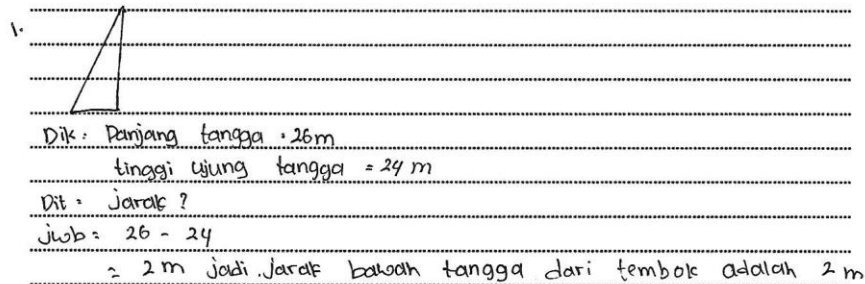 1.
Dik : Panjang tangga = 26 m
tinggi ujung tangga = 24 m
Dit : Jarak ?
jwb = 26 - 24
= 2 m jadi, jarak bawah tangga dari tembok adalah 2 m